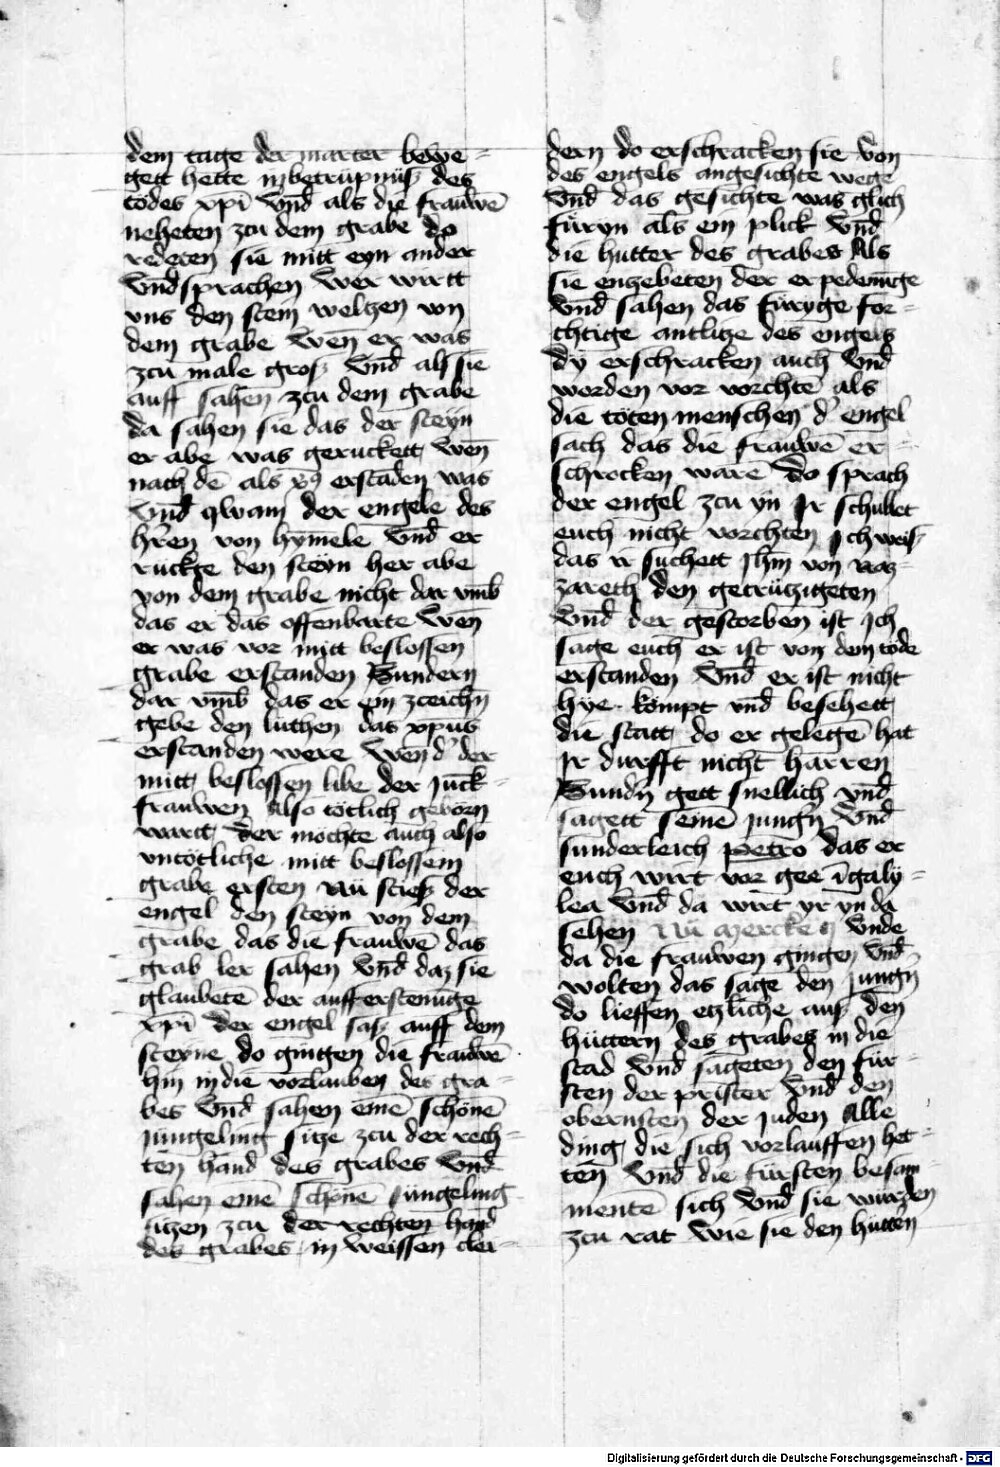 dem tage der marter bewe=
gett hette in betrupnüß des
todes xpī Vnd als die frauwē
neheten zcu dem grabe do
redeten sie mitt eyn ander
Vnd sprachen Wer wirtt
vns den stein weltzen von
dem grabe Wēn er was
zcu male groß Vnd alß sie
auff sahen zcu dem grabe
da sahen sie das der steyn
er abe was geruckett Wēn
nach dē als xp̄9 erstādē was
Vnd qwam der engele des
hr̄en von hymele Vnd er
ruckte den steyn her abe
von dem grabe nicht dar vm̄b
das er das offenbarte Wēn
er was vor mitt beslossen
grabe erstanden Sundern
dar vm̄b das er ein zceichn̄
gebe den luthen das xpus
erstanden were Wend' der
mitt beslossen libe der Juck=
frauwen Also totlich geborn
wartt Der mochte auch also
vntötliche mitt beslossem
grabe ersten Nü stieß der
engel den steyn von dem
grabe das die frauwē das
grab ler sahen Vnd daz sie
glaubetē der aufferstenūge
xpī Der engel saß auff dem
steyne do gingen die frauwē
hin in die vorlauben des gra=
bes Vnd sahen einē schönē
Jungeling sitze zcu der rech=
ten hand des grabes Vnd
sahen einē schönē Jüngeling
sitzen zcu der rechten hand
des grabes in weissen clei=
dern do erschracken sie von
des engels angesichte wege
Vnd das gesichte was glich
füryn als ein plick Vnd
die hutter des grabes Als
sie enzebeten der erpedemūge
Vnd sahen das füryge for=
chtige antlitze des engels
dy erschracken auch Vnd
worden vor vorchtē als
die toten menschen d' engel
sach das die frauwē er=
schrocken warē Do sprach
der engel zcu yn Jr schullet
euch nicht vorchten Jch weis
das ir suchett Jhm̄ von naz=
zareth den getrützigeten
Vnd der gestorben ist Jch
sage euch er ist von dem tode
erstanden Vnd er ist nicht
hye kompt vnd besehett
die statt do er gelegē hat
Jr durfft nicht harren
Sundn̄ gett snellich vnd
sagett seinē Jungn̄ Vnd
sunderleich petro das er
euch wirt vor gee īgaly=
lea Vnd da wirt yr yn da
sehen Nü mercken Vnde
da die frauwen gingen Vnd
wolten das sage den Jungn̄
do lieffen etzliche aus den
hüttern des grabes in die
stad Vnd sageten den für=
sten der prister Vnd den
obernsten der Juden Alle
ding die sich vorlauffen het=
ten Vnd die fürsten besam=
mentē sich Vnd sie wurden
zcu rat Wie sie den hüttēn
Digitalisierung gefördert durch die Deutsche Forschungsgemeinschaft - DFG